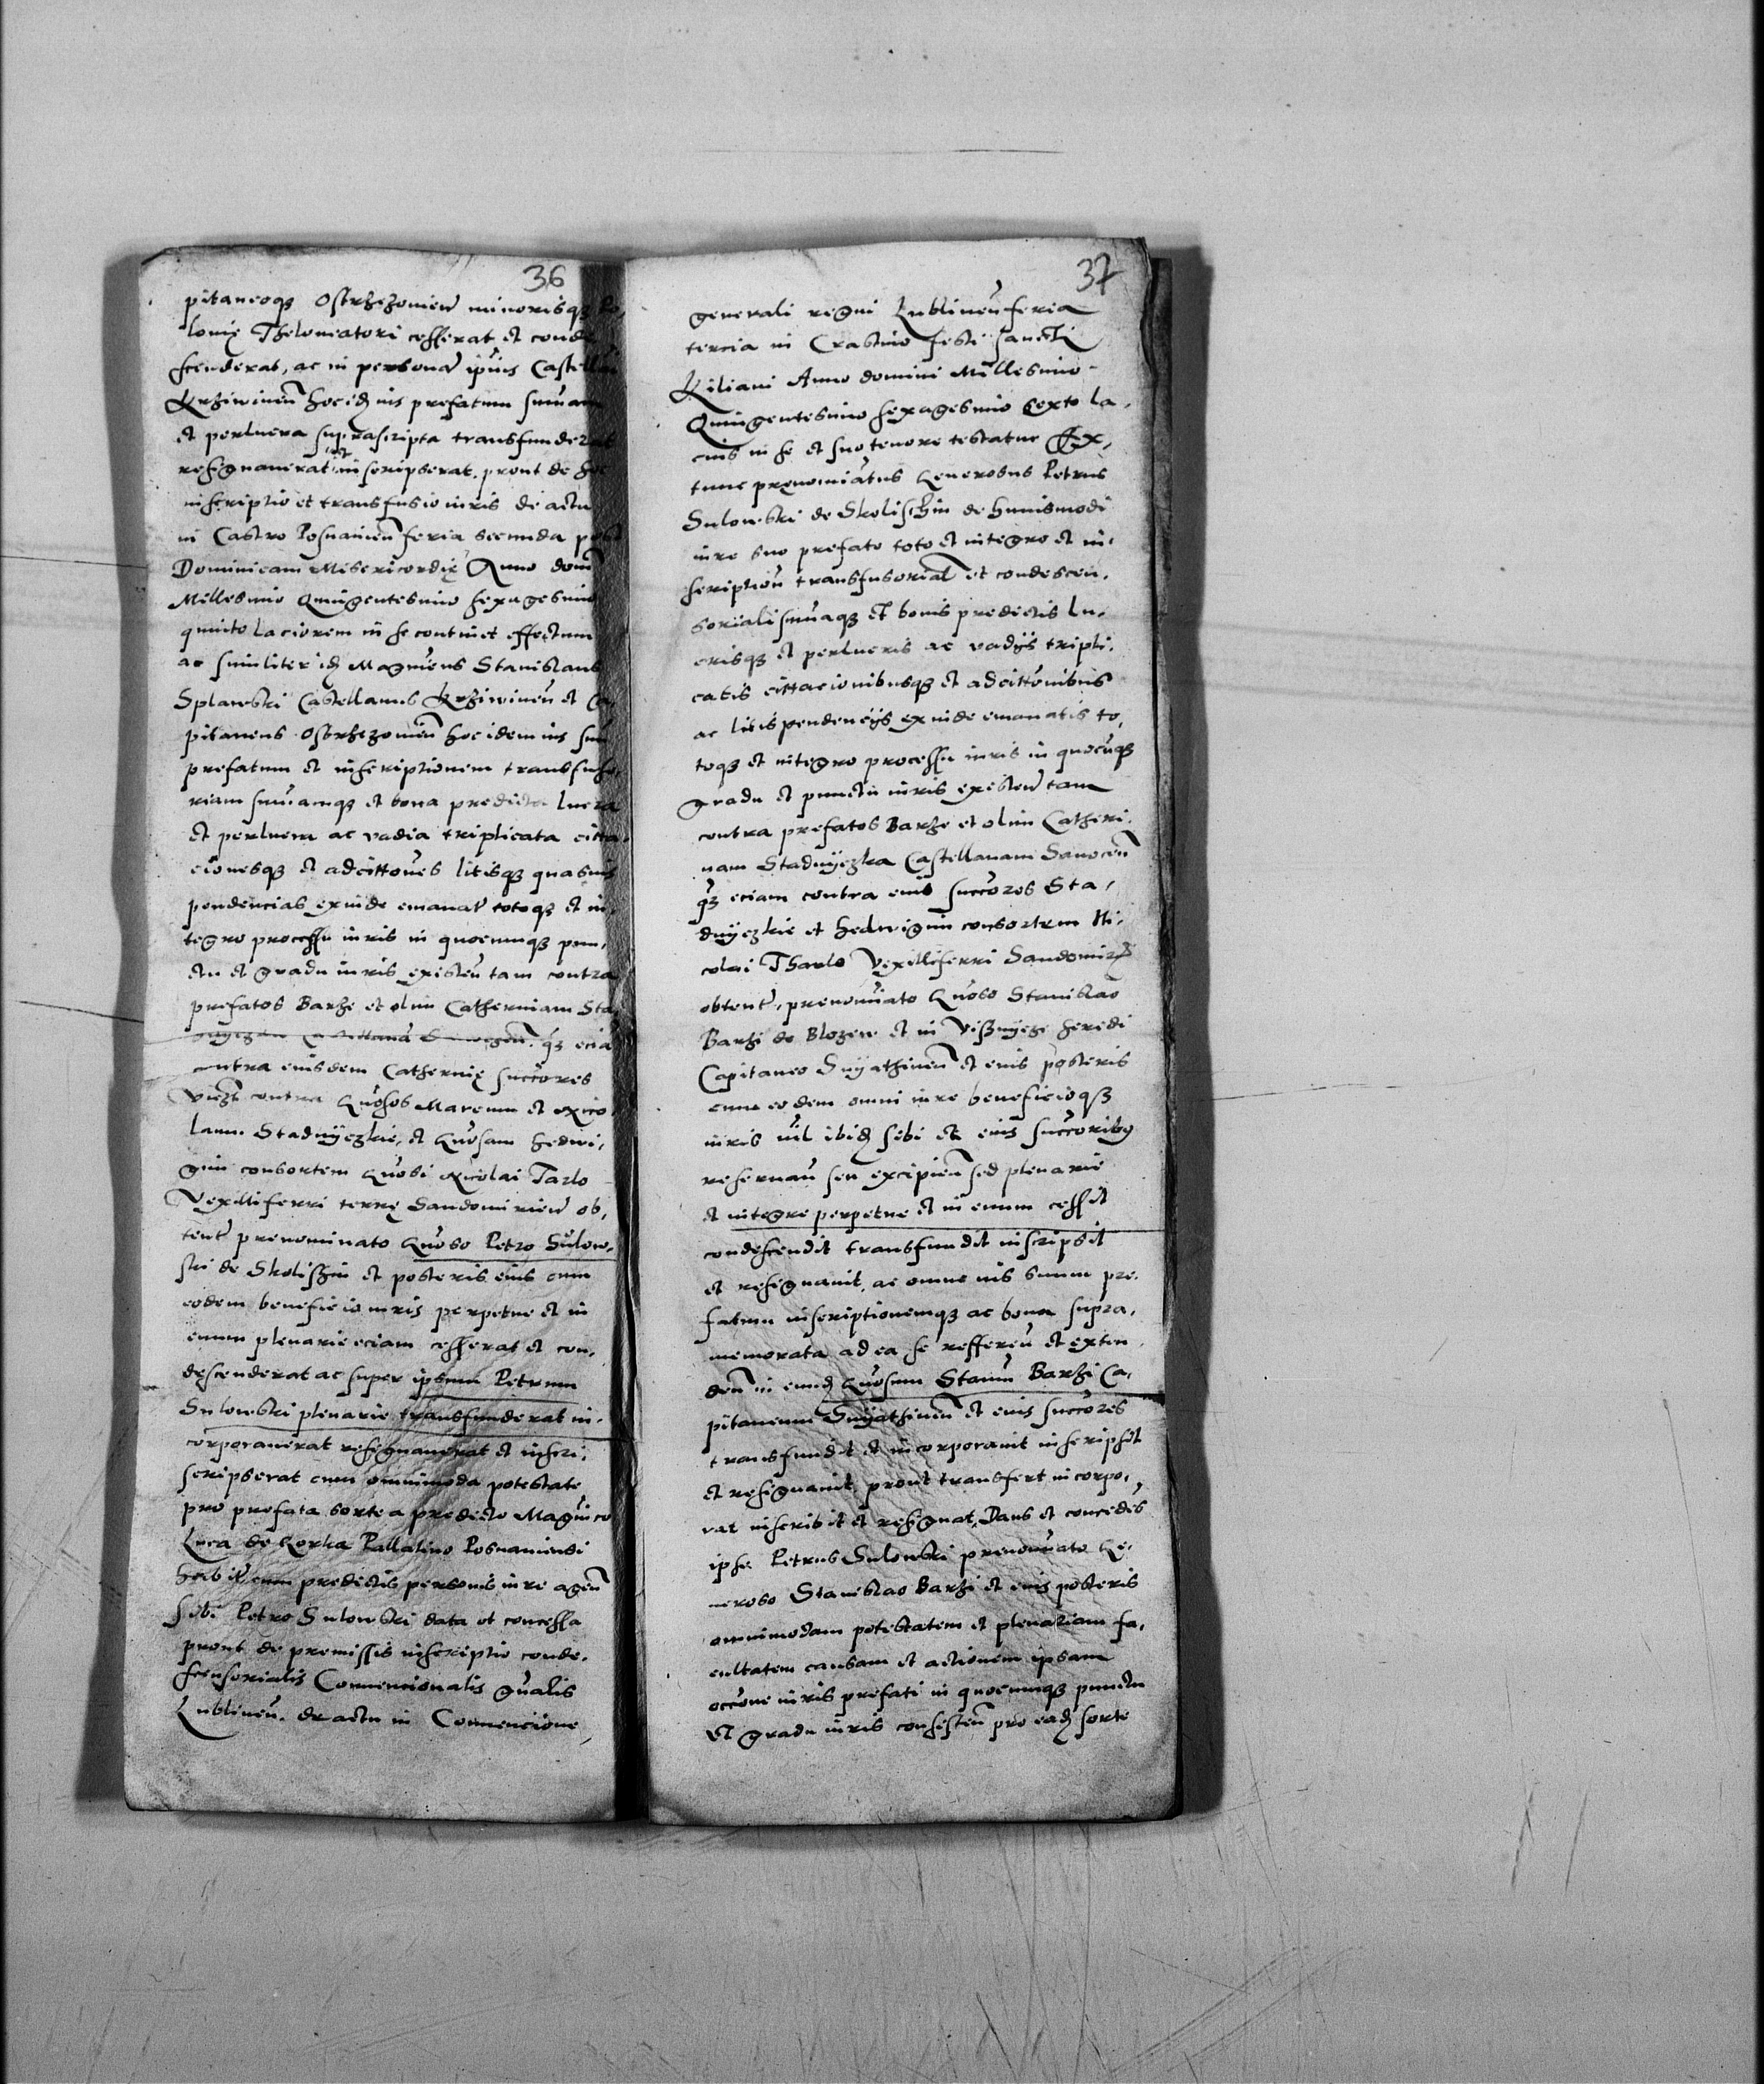 36
pitaneoqz Ostrzezomien minorisqz Po,
lonię Theloneatori cesserat et conde
scenderat, ac in persona ipius Castella
Krziwinen hoc idz ius prefatum summam
et perlucra suprascripta transfunderat
resignauerat et inscripserat. prout de hoc
inscriptio et transfusio iuris de actu
in Castro Posnanien feria secunda post
Dominicam Misericordię Anno dom
Millesimo Quingentesimo sexagesimo
quinto laciorem in se continet effectum
ac similiter idz Magnicus Stanislaus
Splawski Castellanus Krziwinen et Ca,
pitaneus Ostrzezomien hoc idem ius suu
prefatum et inscriptionem transfuso,
riam summamqz et bona predicta lucra
et perlucra ac vadia triplicata citta,
cionesqz et adcittones litisqz quasuis
pendencias exinde emanat totoqz et in,
tegro processu iuris in quocumqz pun,
ctu et gradu iuris existen tam contra
prefatos Barzi et olim Catherinam Sta
qz ecia
contra eiusdem Catherinę succores
viczt contra Gnosos Marcum et Nico
laum Stadnyczkie, et Gnosam Hedwi,
gim consortem Gnosi Nicolai Tarlo
Vexilliferri terrę Sandomirien ob,
tent prenominato Gnoso Petro Sulow,
ski de Skoliszin et posteris eius cum
eodem beneficio iuris perpetue et in
euum plenarie eciam cesserat et con,
descenderat ac super ipsum Petrum
Sulowski plenarie transfunderat in,
corporauerat resignauerat et inscri,
scripserat cum omnimoda potestate
pro prefata sorte a predicto Magnico
Luca de Gorka Pallatino Posnaniensi
habit cum predictis personis iure agen
sibi Petro Sulowski data et concessa
prout de premissis inscriptio conde,
scensorialis Conuencionalis gnalis
Lublinen. de actu in Conuencione,
37
generali regni Lublinen feria
tercia in Crastino festi sancti
Kiliani Anno domini Millesimo
Quingentesimo sexagesimo sexto la,
cius in se et suo tenore testatur Ex,
tunc prenominatus Generosus Petrus
Sulowski de Skolischin de huiusmodi
iure suo prefato toto et integro et in,
scription transfusorial et condescen,
soriali summaqz et bonis predictis lu,
crisqz et perlucris ac vadiis tripli,
catis cittacionibusqz et adcittonibus
ac litispendencijs exinde emanatis to,
toqz et integro processu iuris in quocuqz
gradu et punctu iuris existen tam
contra prefatos Barze et olim Catheri,
nam Stadnyczka Castellanam Sanocen
qz eciam contra eius succores Sta,
dnyczkie et Hedwigim consortem Ni,
colai Tharlo Vexilliferri Sandomirz
obtent, prenominato Gnoso Stanislao
Barzi de Blozew et in Visznycze heredi
Capitaneo Snyathinen et eius posteris
cum eodem omni iure beneficioqz
iuris nil ibidz sibi et eius succoribus
reseruan seu excipien sed plenarie
et integre perpetue et in euum cessit
condescendit transfundit inscripsit
et resignauit, ac omne ius suum pre,
fatum inscriptionemqz ac bona supra,
memorata ad ea se refferen et exten,
den in eundz Gnosum Stanum Barzi Ca,
pitaneum Snyathinen et eius succores
transfundit et incorporauit inscripsit
et resignauit, prout transfert incorpo,
rat inscribit et resignat, Dans et concedes
ipse Petrus Sulowski prenominato Ge,
neroso Stanislao Barzi et eius posteris
omnimodam potestatem et plenariam fa,
cultatem causam et actionem ipsam
occone iuris prefati in quocumqz punctu
et gradu iuris consisten pro eadz sorte